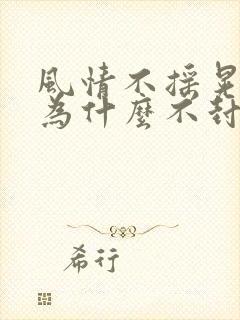 風情不搖晃
為什麼不封
希行